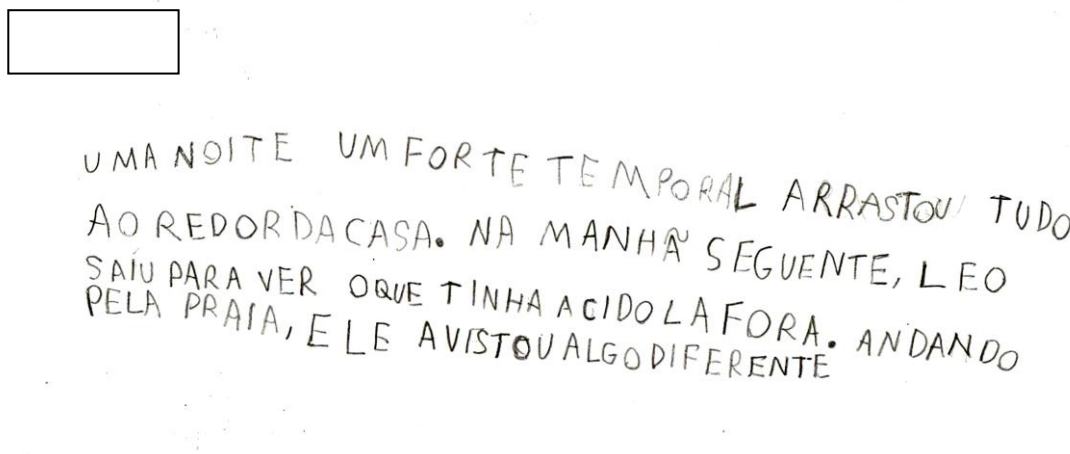 UMA NOITE UM FORTE TEMPORAL ARRASTOU TUDO
AO REDOR DA CASA. NA MANHÃ SEGUENTE, LEO
SAÍU PARA VER OQUE TINHA ACIDO LA FORA. ANDANDO
PELA PRAIA, ELE AVISTOU ALGO DIFERENTE